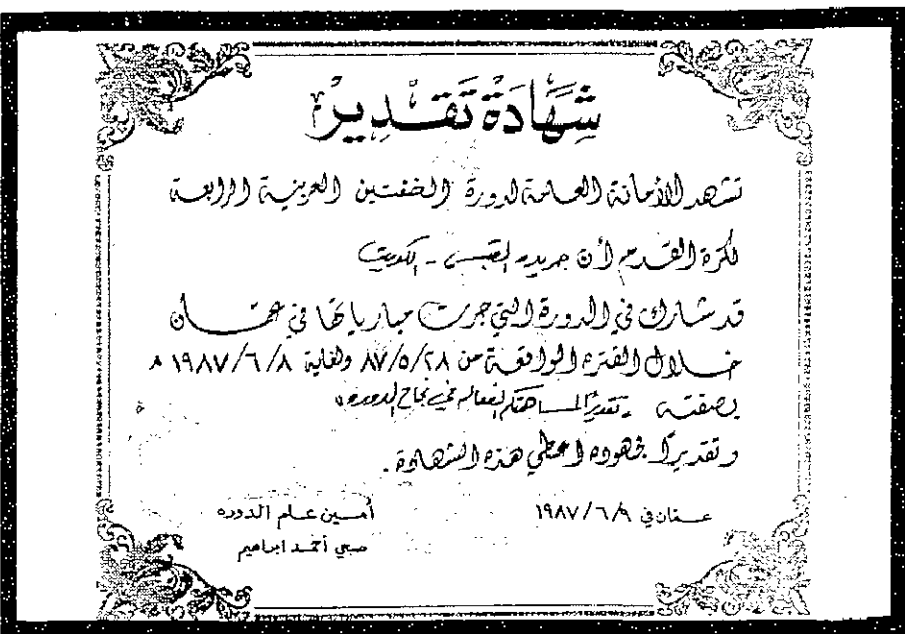 شهادة تقدير
تشهد الأمانة العامة لدورة الضفتين العربية الرابعة
لكرة القدم أن جريده القبس - الكويت
قد شارك في الدورة التي جرت مبارياتها في عمان
خلال الفترة الواقعة من ٨٧/٥/٢٨ ولغاية ١٩٨٧/٦/٨
بصفته - تقديراً لمساهمتكم الفعاله في نجاح الدوره
وتقديراً لجهوده اعطي هذه الشهادة .
عمان في ١٩٨٧/٦/٩
أمين عام الدوره
صبحي أحمد ابراهيم